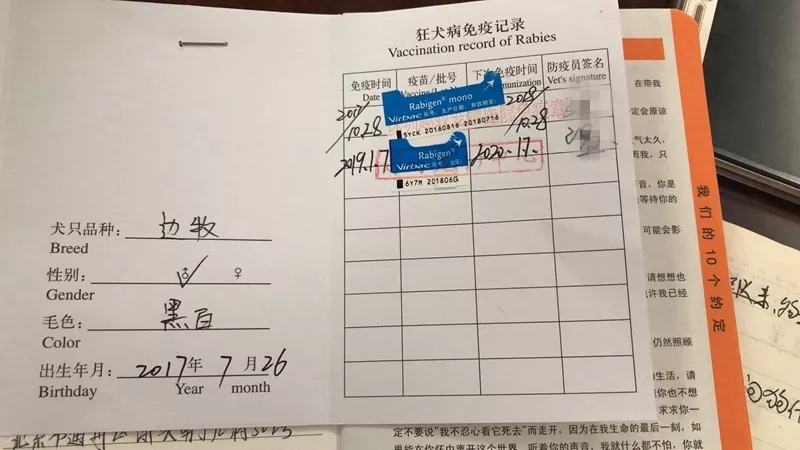 狂犬病免疫记录
Vaccination record of Rabies
免疫时间 疫苗/批号 下次免疫时间 防疫员签名
Date Vet's signature
Rabigen® mono
Virbac 批号: 生产日期: 有效期至:
5YCK 20160816 20180716
2017/10.28 2018/10.28
Rabigen®
Virbac 批号:
6Y7M 201806
2019.1.7 2020.1.7.
犬只品种: 边牧
Breed
性别: ♂ ♀
Gender
毛色: 黑白
Color
出生年月: 2017年 7月26
Birthday Year month
我们的10个约定
在带我
定会原谅
气太久,
而我,只
音,你是
等待你的
可能会影
请想想也
许我已经
仍然照顾
的生活,请
你也不想
求求你一
定不要说“我不忍心看它死去”而走开,因为在我生命的最后一刻,如
果能在你怀中离开这个世界,听着你的声音,我就什么都不怕,你就